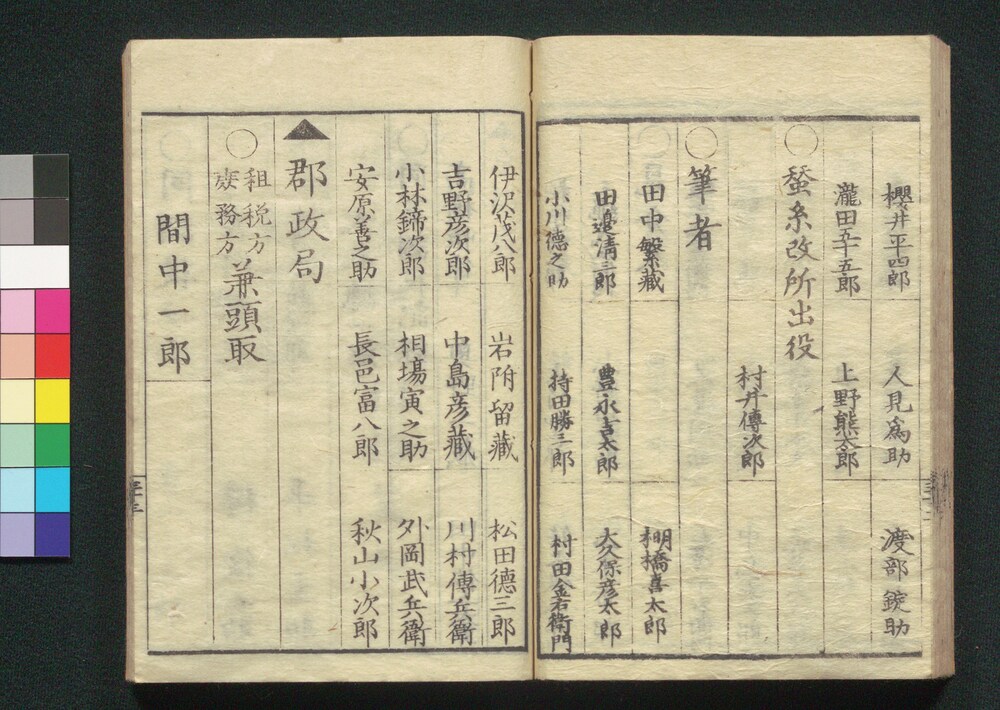 櫻井平四郎　人見為助　渡部錠助
瀧田五十五郎　上野熊太郎
〇蚕糸改所出役
村井傳次郎
〇筆者
田中繁藏　棚橋喜太郎
田邉清三郎　豊永吉太郎　大久保彦太郎
小川德之助　持田勝三郎　村田金右衛門
伊沢茂八郎　岩附留藏　松田德三郎
吉野彦次郎　中島彦藏　川村傳兵衛
小林錦次郎　相場寅之助　外岡武兵衛
安原善之助　長邑富八郎　秋山小次郎
▲郡政局
〇租税方 庶務方 兼頭取
間中一郎